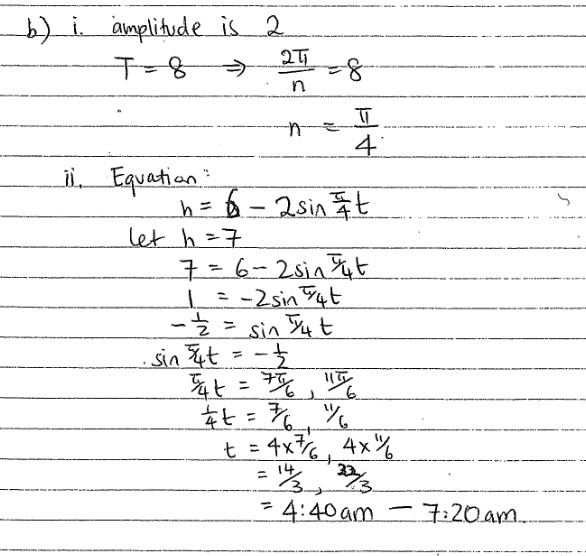 b) i. amplitude is 2
T = 8 ⇒ 2π/n = 8
n = π/4
ii. Equation:
h = 6 - 2sin π/4 t
let h = 7
7 = 6 - 2sin π/4 t
1 = -2sin π/4 t
-1/2 = sin π/4 t
sin π/4 t = -1/2
π/4 t = 7π/6, 11π/6
1/4 t = 7/6, 11/6
t = 4x7/6, 4x11/6
= 14/3, 22/3
= 4:40am - 7:20am.